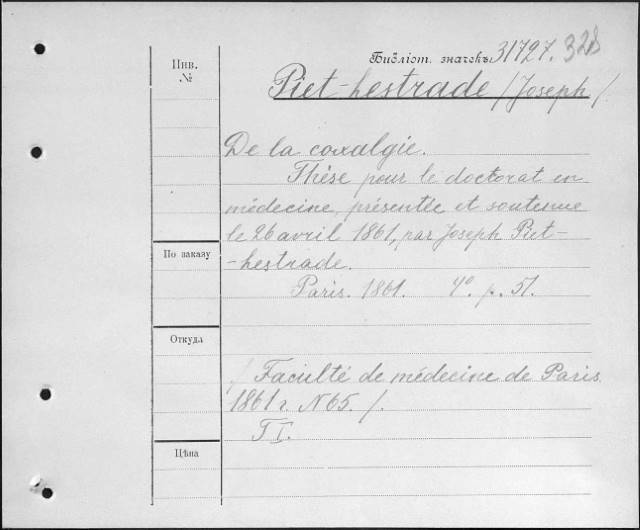 Инв.
№
Библіот. значекъ 31727. 328
Piet-hestrade /Joseph/
De la coxalgie.
Thése pour le doctorat en
médecine, présentée et soutenue
le 26 avril 1861, par Joseph Piet-
-hestrade.
Paris. 1861. 4º. p. 51.
По заказу
Откуда
/ Faculté de médecine de Paris
1861 г. N 65. /.
T I.
Цѣна